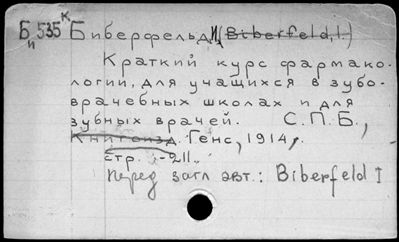 Би 535 к Биберфельд, И. (Biberfeld, I.)
Краткий курс фармако-
логии, для учащихся в зубо-
врачебных школах и для
зубных врачей. С.П.Б.,
Книгоизд. Генс, 1914,.
стр. -211.
перед загл авт.: Biberfeld I